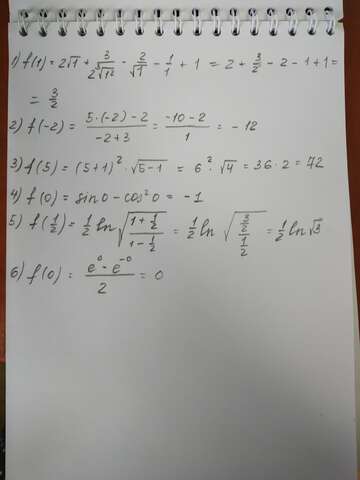 1) f(1) = 2√1 + 3/(2∛1²) - 2/√1 - 1/1 + 1 = 2 + 3/2 - 2 - 1 + 1 =
= 3/2
2) f(-2) = (5·(-2)-2)/(-2+3) = (-10-2)/1 = -12
3) f(5) = (5+1)²·√(5-1) = 6²·√4 = 36·2 = 72
4) f(0) = sin0 - cos²0 = -1
5) f(1/2) = 1/2 ln √((1+1/2)/(1-1/2)) = 1/2 ln √((3/2)/(1/2)) = 1/2 ln √3
6) f(0) = (e⁰ - e⁻⁰)/2 = 0